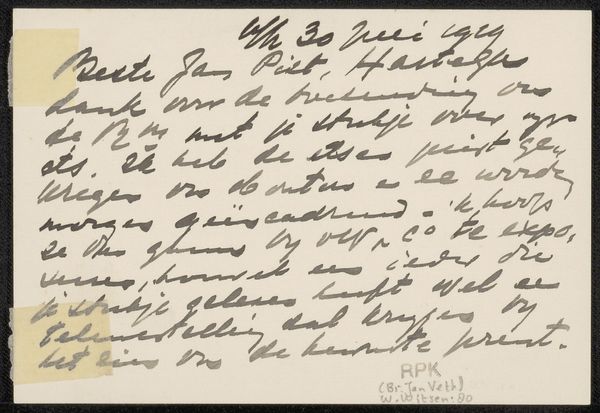 30 Juni 1919
Beste Jan Piet, Hartelijk
dank voor de toezending van
de R M met je stukje over mijn
ets. Ik heb de etsen juist ge,
kregen van en ze worden
morgen geëncadreerd. 'k hoop
ze bij & Co te expo,
seren, hoewel een ieder die
je stukje gelezen heeft wel een
teleurstelling zal krijgen bij
het zien van de bewuste prent.
RPK
(Br. Jan Veth)
W. Witsen: 80